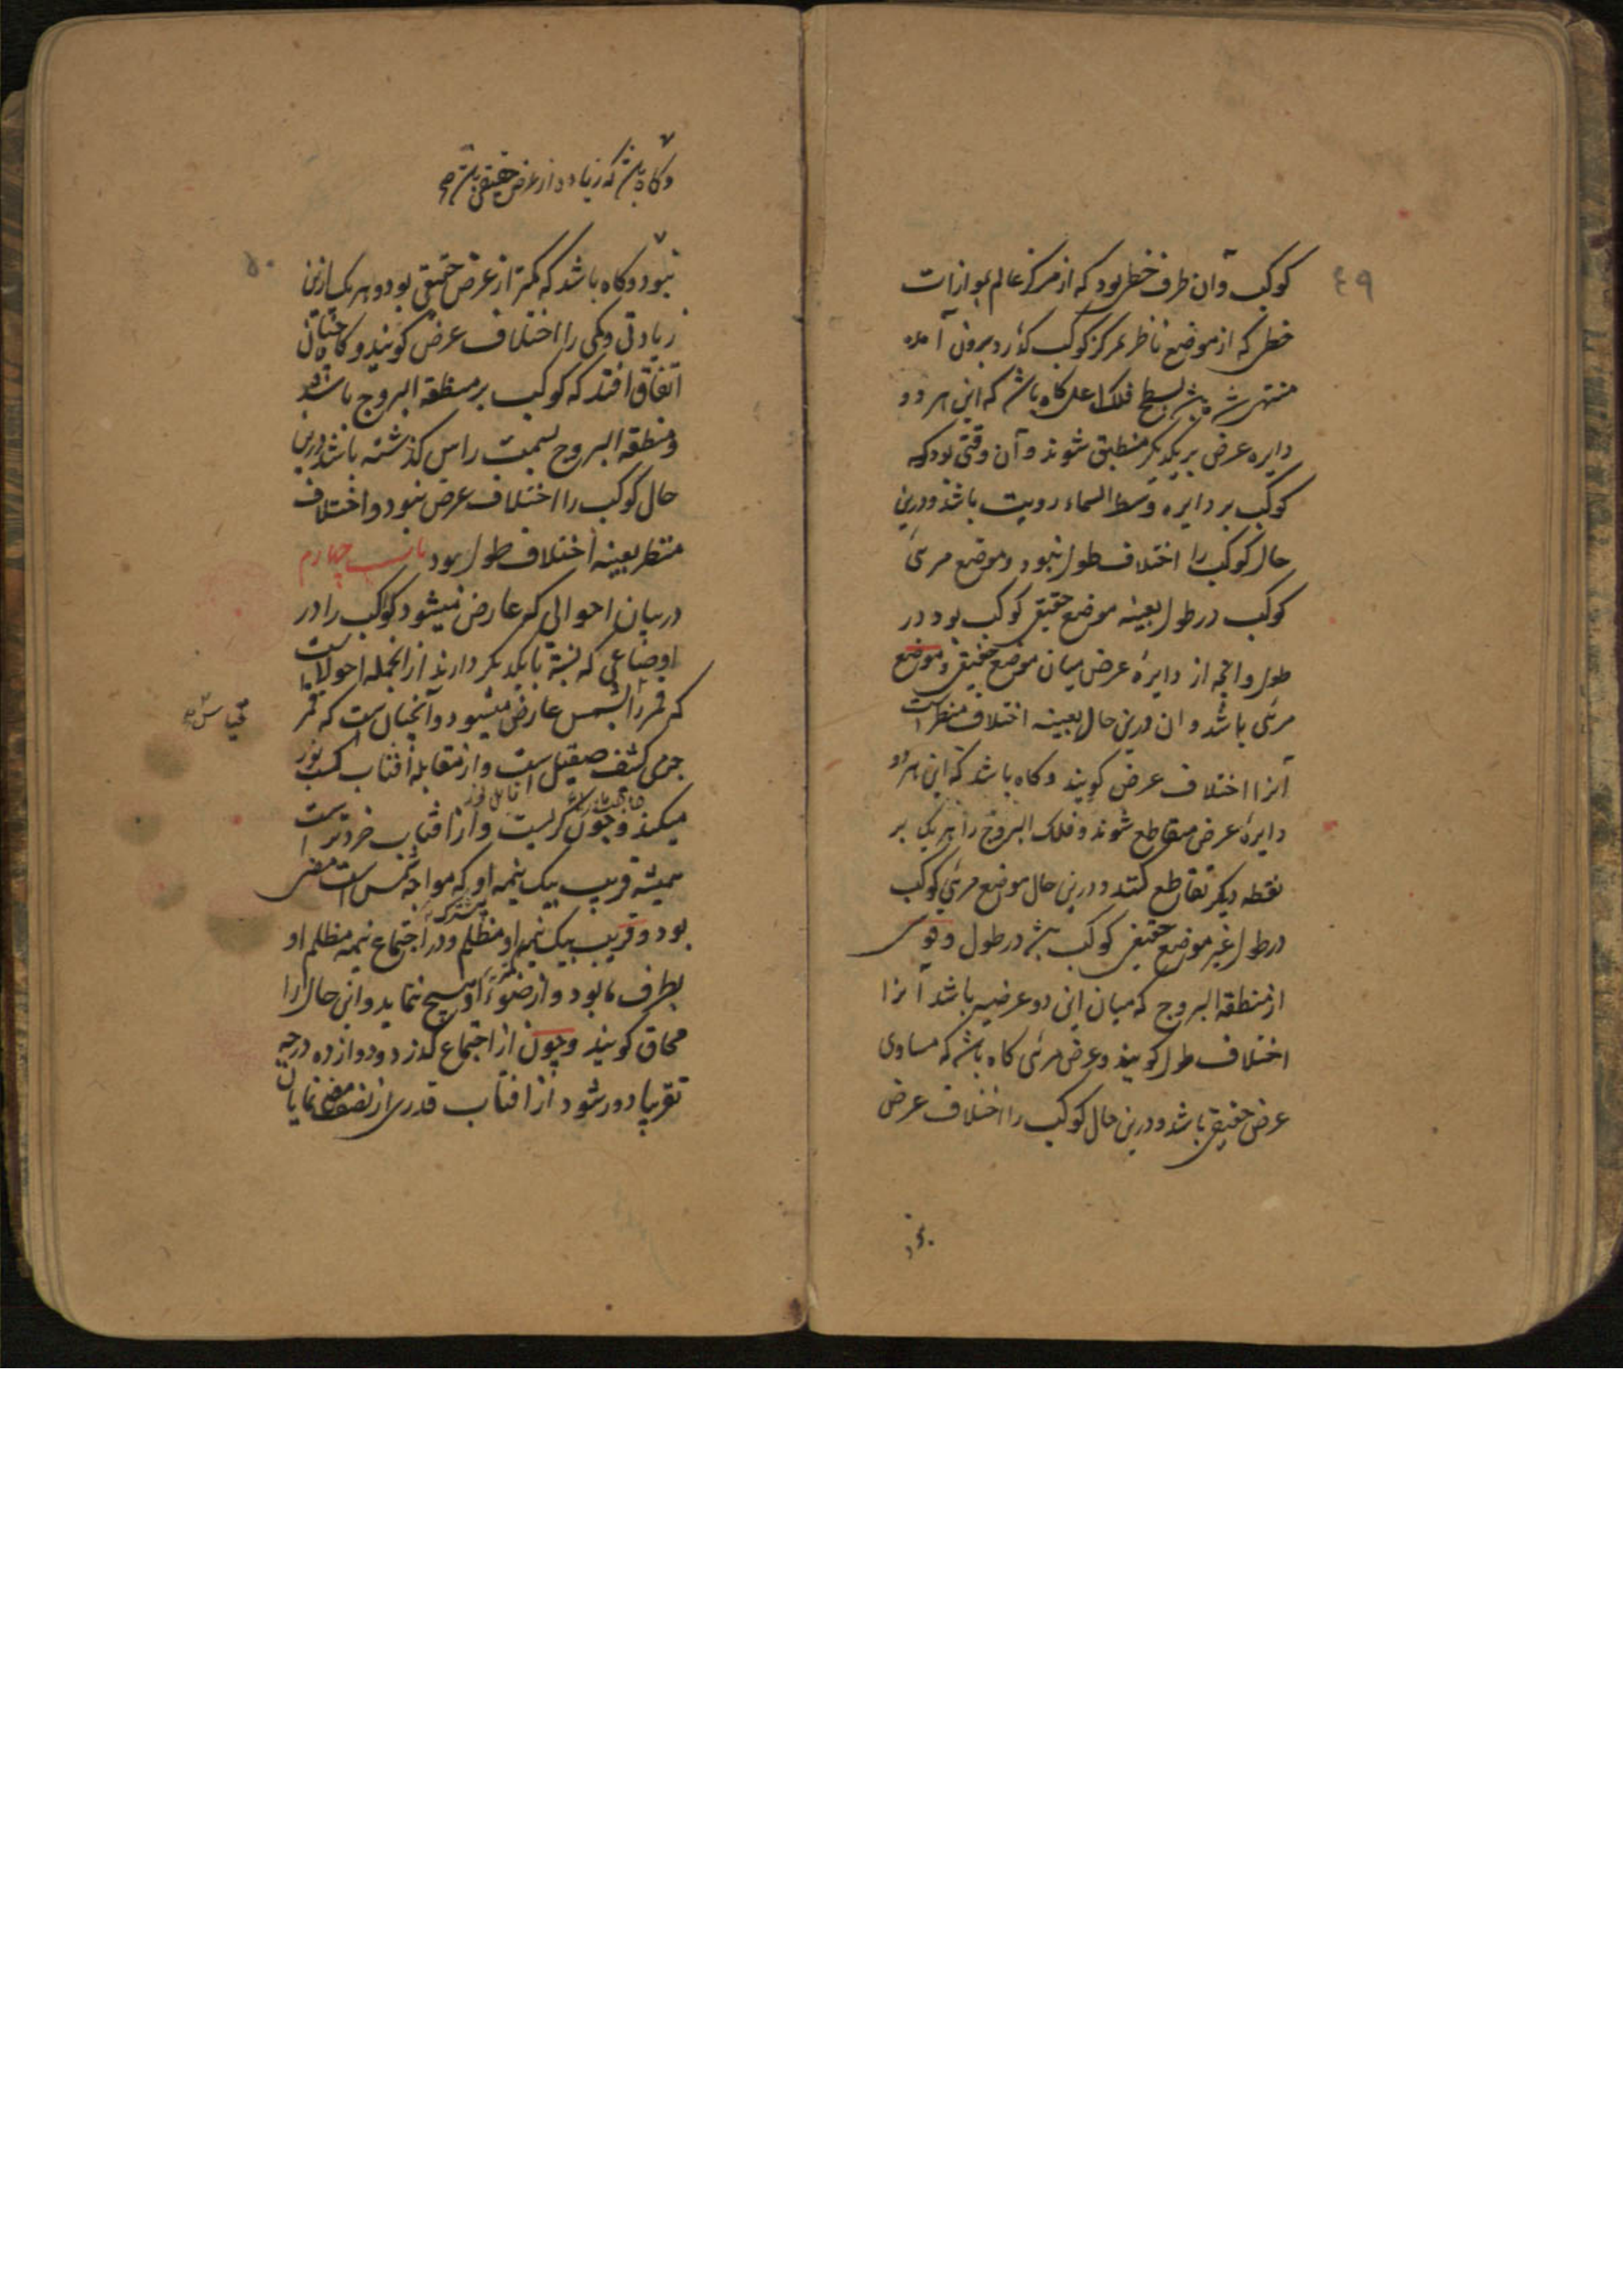 ٤٩
كوكب وآن طرف خطى بود كه از مركز عالم بموازات
خطى كه از موضع ناظر بمركز كوكب كذرد بيرون آمده
منتهى شده باشد بسطح فلك اعلى كاه باشد كه اين هر دو
دايره عرض بر يكديكر منطبق شوند وآن وقتى بود كه
كوكب بر دايره وسط السماء رويت باشد ودرين
حال كوكب را اختلاف طول نبود وموضع مرئى
كوكب در طول بعينه موضع حقيقى كوكب بود در
طول وانچه از دايرهٔ عرض ميان موضع حقيقى وموضع
مرئى باشد وان درين حال بعينه اختلاف منظر است
آنرا اختلاف عرض كويند وكاه باشد كه اين هر دو
دايرهٔ عرض متقاطع شوند وفلك البروج را هر يك بر
نقطه ديكر تقاطع كنند ودرين حال موضع مرئى كوكب
در طول غير موضع حقيقى كوكب باشد در طول وقوسى
از منطقه البروج كه ميان اين دو عرضيه باشد آنرا
اختلاف طول كويند وعرض مرئى كاه باشد كه مساوى
عرض حقيقى باشد ودرين حال كوكب را اختلاف عرض
نبود
وكاه باشد كه زياده از عرض حقيقى باشد صح
٥٠
نبود وكاه باشد كه كمتر از عرض حقيقى بود وهر يك ازين
زيادتى وكمى را اختلاف عرض كويند وكاه چنان
اتفاق افتد كه كوكب بر منطقه البروج باشد
ومنطقه البروج بسمت راس كذشته باشد درين
حال كوكب را اختلاف عرض نبود واختلاف
منظر بعينه اختلاف طول بود باب چهارم
در بيان احوالى كه عارض ميشود كواكب را در
اوضاعى كه نسبة با يكديكر دارند از انجمله احوالات
كه قمر را بشمس عارض ميشود وآنچنان است كه قمر
قياس صح
جرمى كثيف صقيل است واز مقابله آفتاب كسب نور
قابل نور
ميكند وچون كريست واز افتاب خردتر است
هميشه قريب بيك نيمه او كه مواجه شمس است مضى
بود وقريب بيك نيمه او مظلم ودر اجتماع نيمه مظلم او
بطرف ما بود واز ضوء او هيچ ننمايد واين حال را
محاق كويند وچون از اجتماع كذرد ودوازده درجه
تقريبا دور شود از افتاب قدرى از نصف مضى نمايان